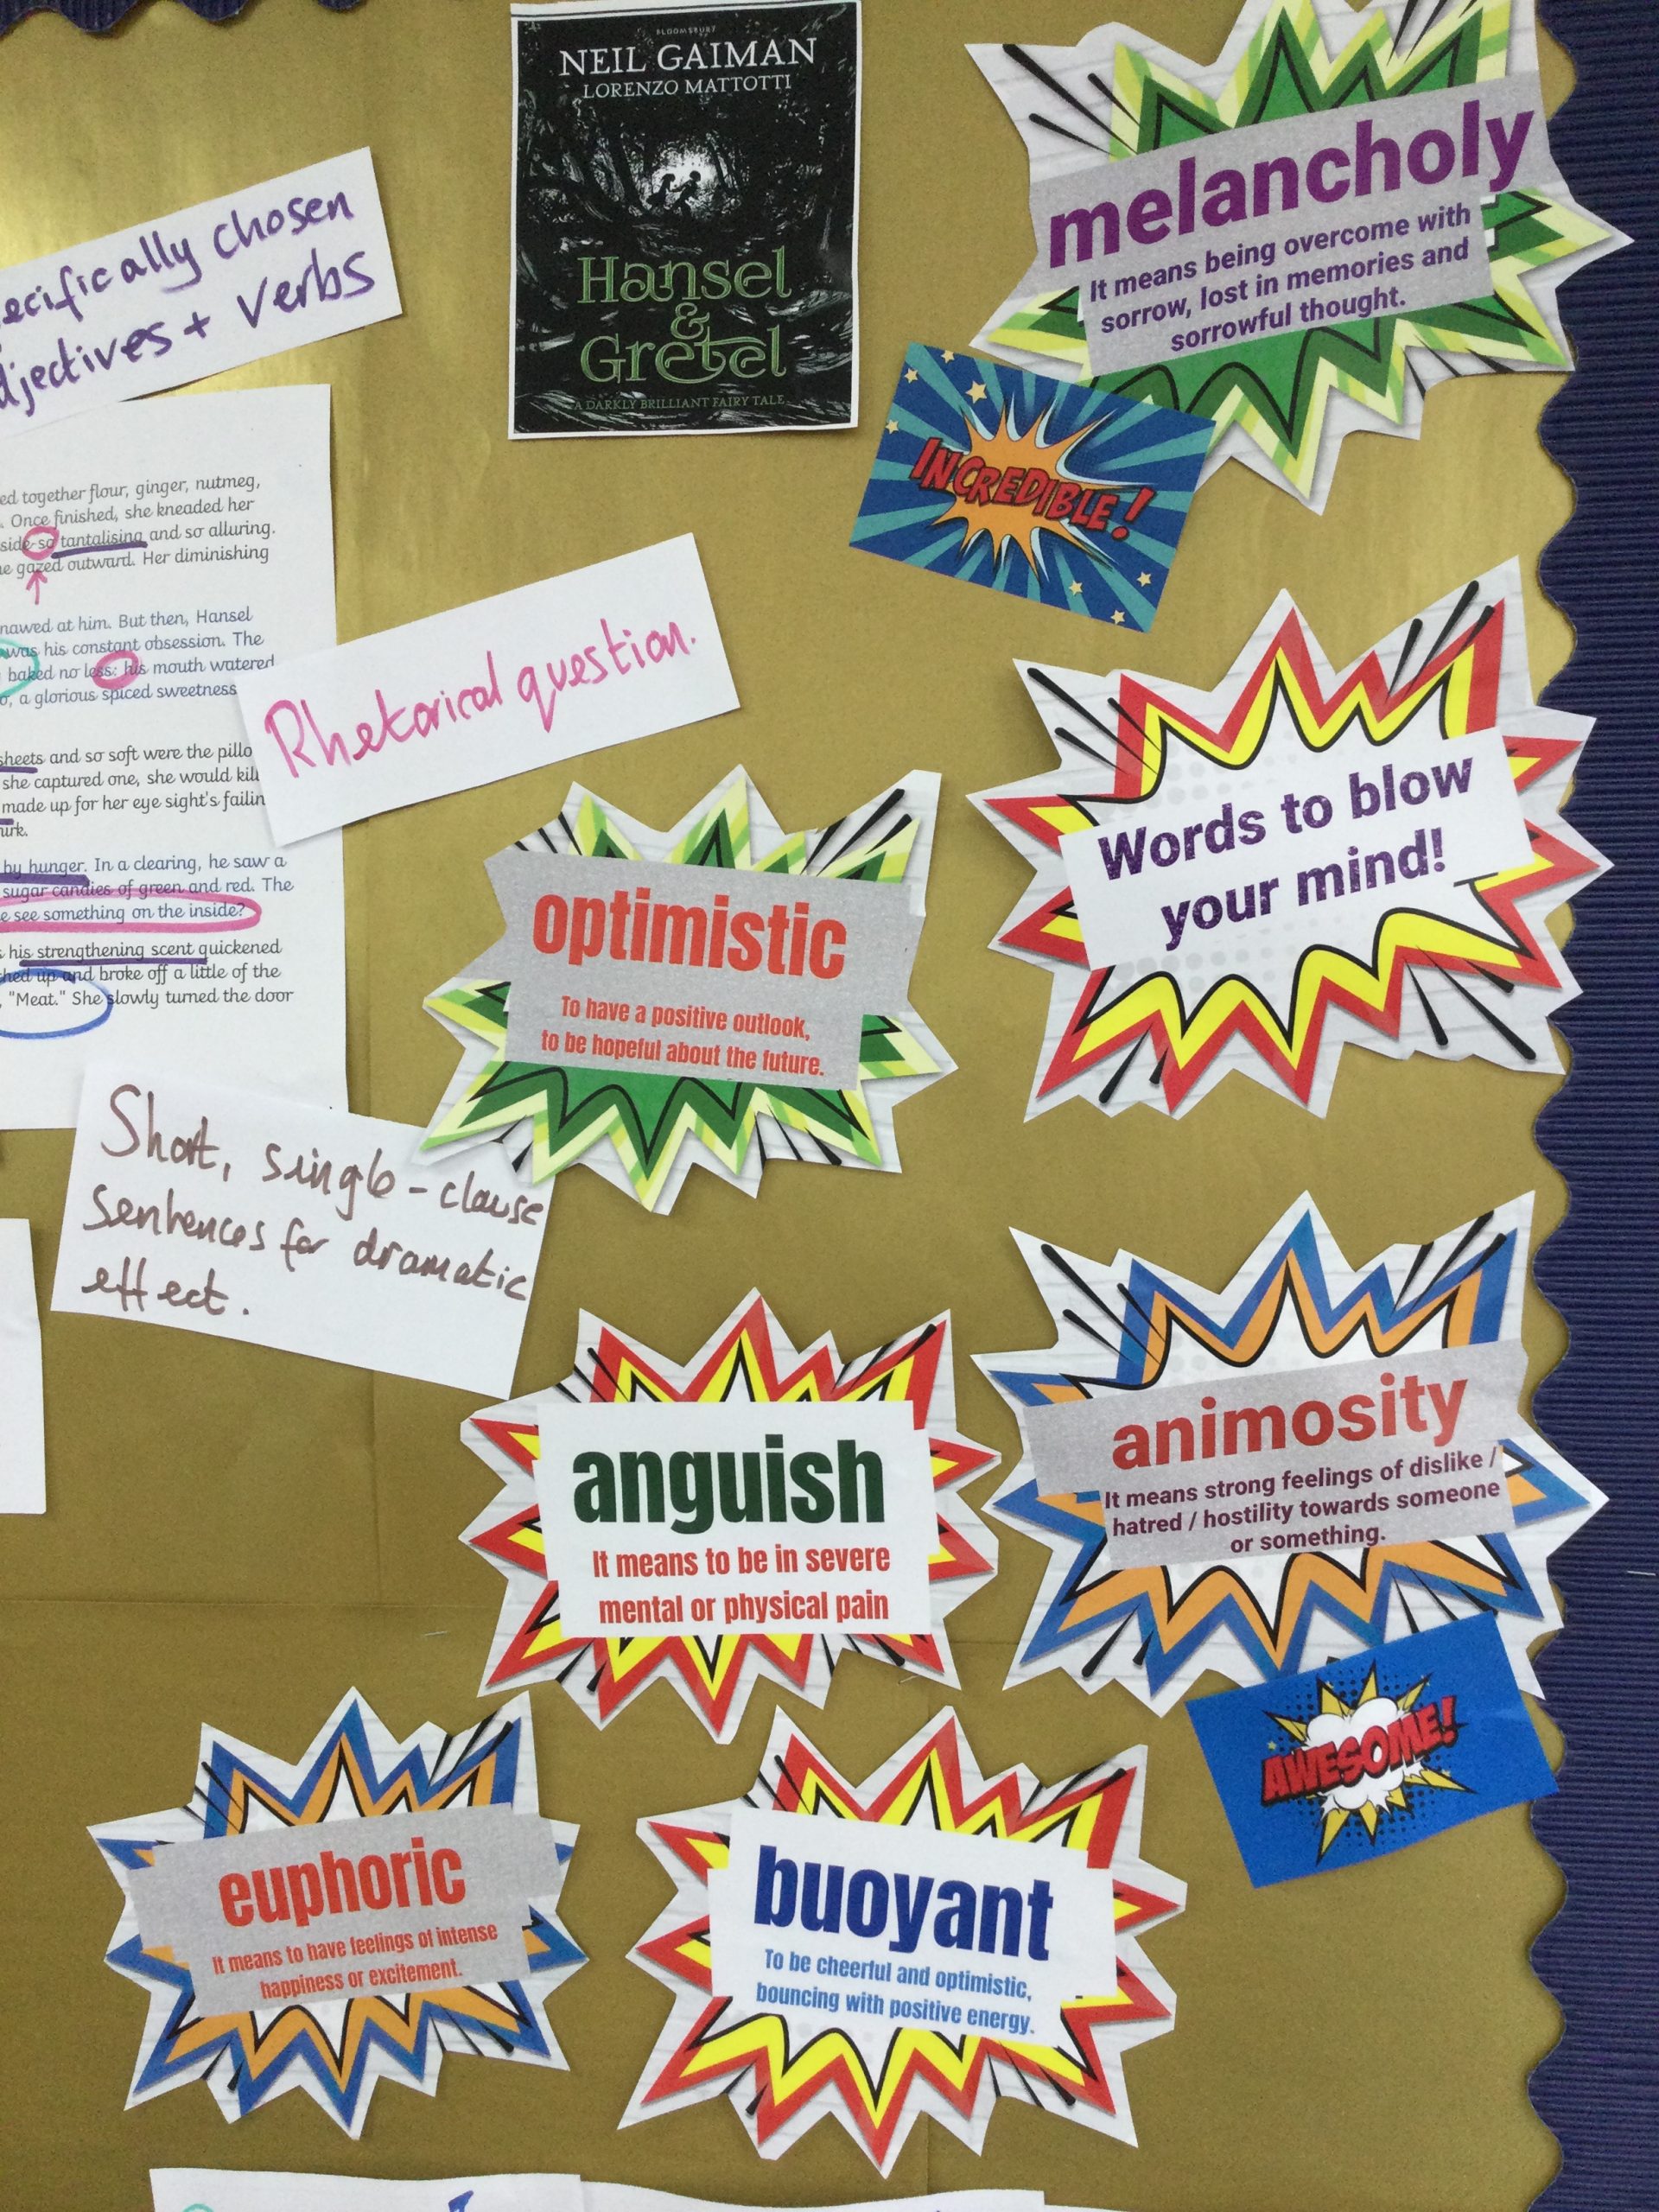 BLOOMSBURY
NEIL GAIMAN
LORENZO MATTOTTI
Hansel
&
Gretel
A DARKLY BRILLIANT FAIRY TALE
melancholy
It means being overcome with
sorrow, lost in memories and
sorrowful thought.
ecifically chosen
djectives + verbs
INCREDIBLE!
ed together flour, ginger, nutmeg,
. Once finished, she kneaded her
side so tantalising and so alluring.
gazed outward. Her diminishing
nawed at him. But then, Hansel
was his constant obsession. The
baked no less: his mouth watered
o, a glorious spiced sweetness
sheets and so soft were the pillo
she captured one, she would kill
made up for her eye sight's failin
by hunger. In a clearing, he saw a
sugar candies of green and red. The
e see something on the inside?
his strengthening scent quickened
hed up and broke off a little of the
"Meat." She slowly turned the door
Rhetorical question.
Words to blow
your mind!
optimistic
To have a positive outlook,
to be hopeful about the future.
Short, single-clause
sentences for dramatic
effect.
animosity
It means strong feelings of dislike /
hatred / hostility towards someone
or something.
anguish
It means to be in severe
mental or physical pain
AWESOME!
euphoric
It means to have feelings of intense
happiness or excitement.
buoyant
To be cheerful and optimistic,
bouncing with positive energy.